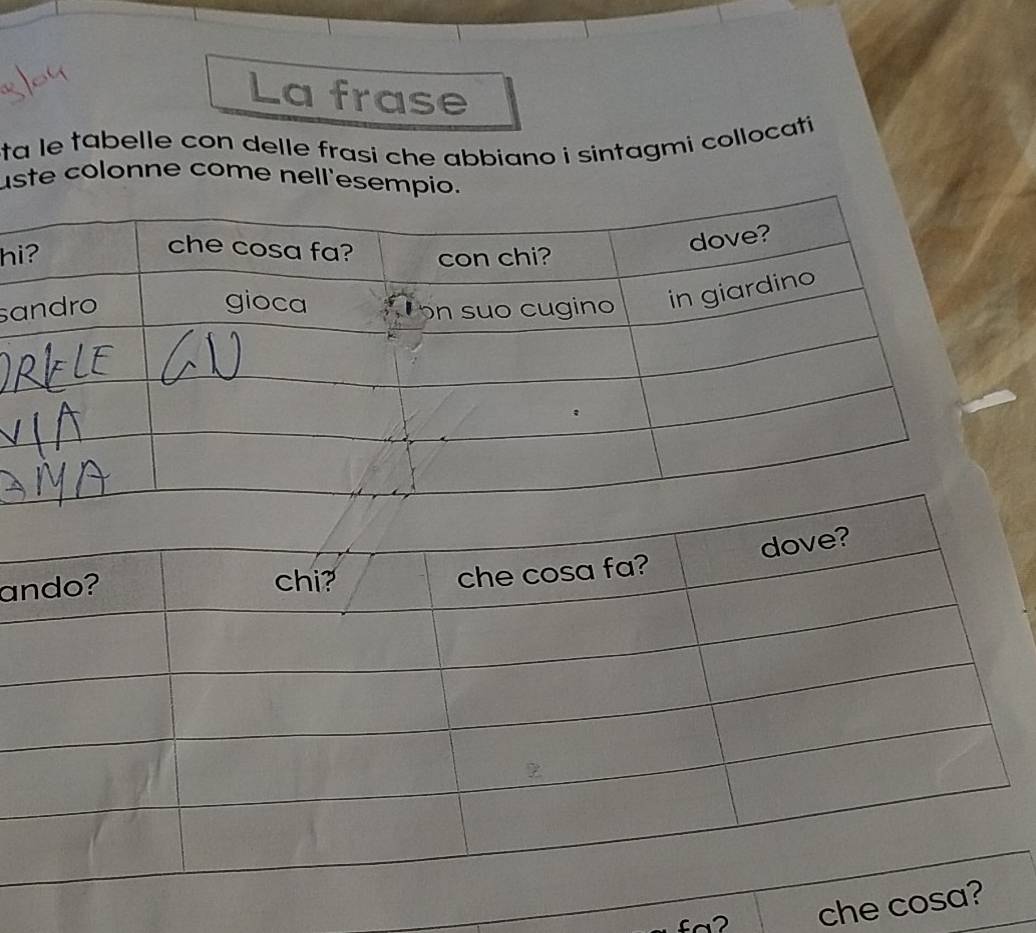 La frase
ta le tabelle con delle frasi che abbiano i sintagmi collocati
uste colonne come nell'esempio.
hi? che cosa fa? con chi? dove?
sandro gioca on suo cugino in giardino
ORELE
VIA
ando? chi? che cosa fa? dove?
fa? che cosa?